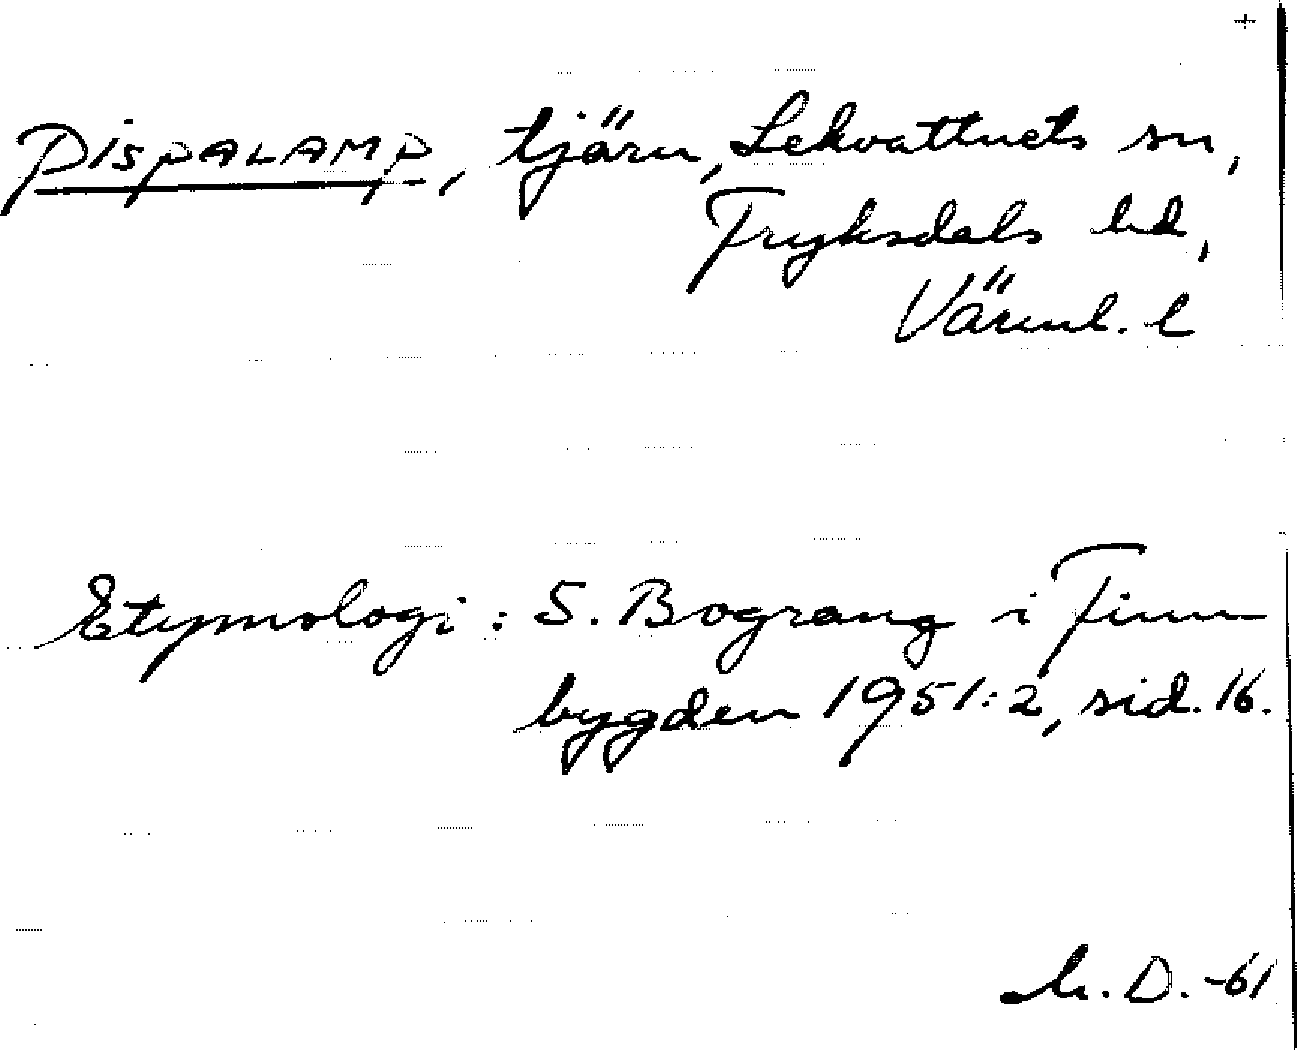 +
PISPALAMP, tjärn, Lekvattnets sn,
Fryksdals hd,
Värml. l
Etymologi: S. Bograng i Finn
bygden 1951:2, sid. 16.
M. D. -61